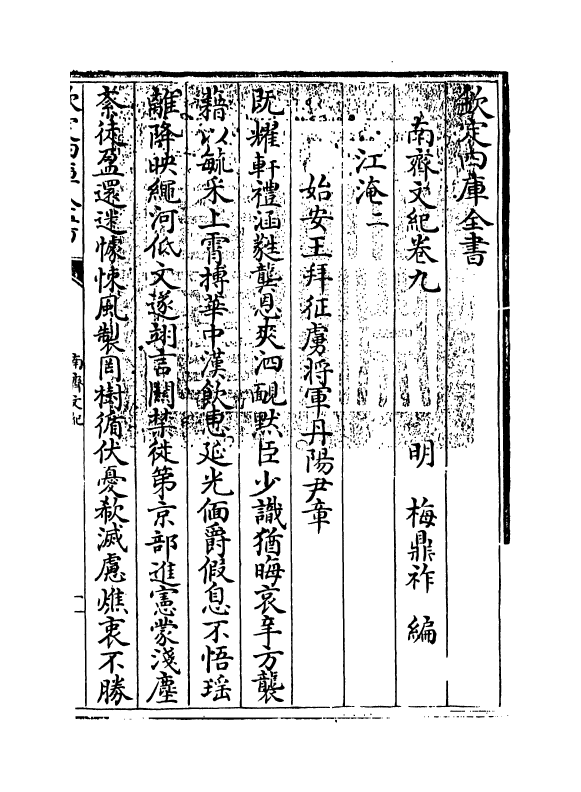 欽定四庫全書
南齊文紀卷九
明 梅鼎祚 編
江淹二
始安王拜征虜將軍丹陽尹章
既耀軒禮涵蕤龔恩爽泗靦默臣少識猶晦哀辛方襲
藉以毓采上霄摶華中漢飲惠延光偭爵假息不悟瑶
離降映繩河低文遂朝言關禁徙第京部進憲蒙淺塵
柰徒盈還迷懅悚風製罔樹循伏憂欷滅慮燋衷不勝
南齊文紀